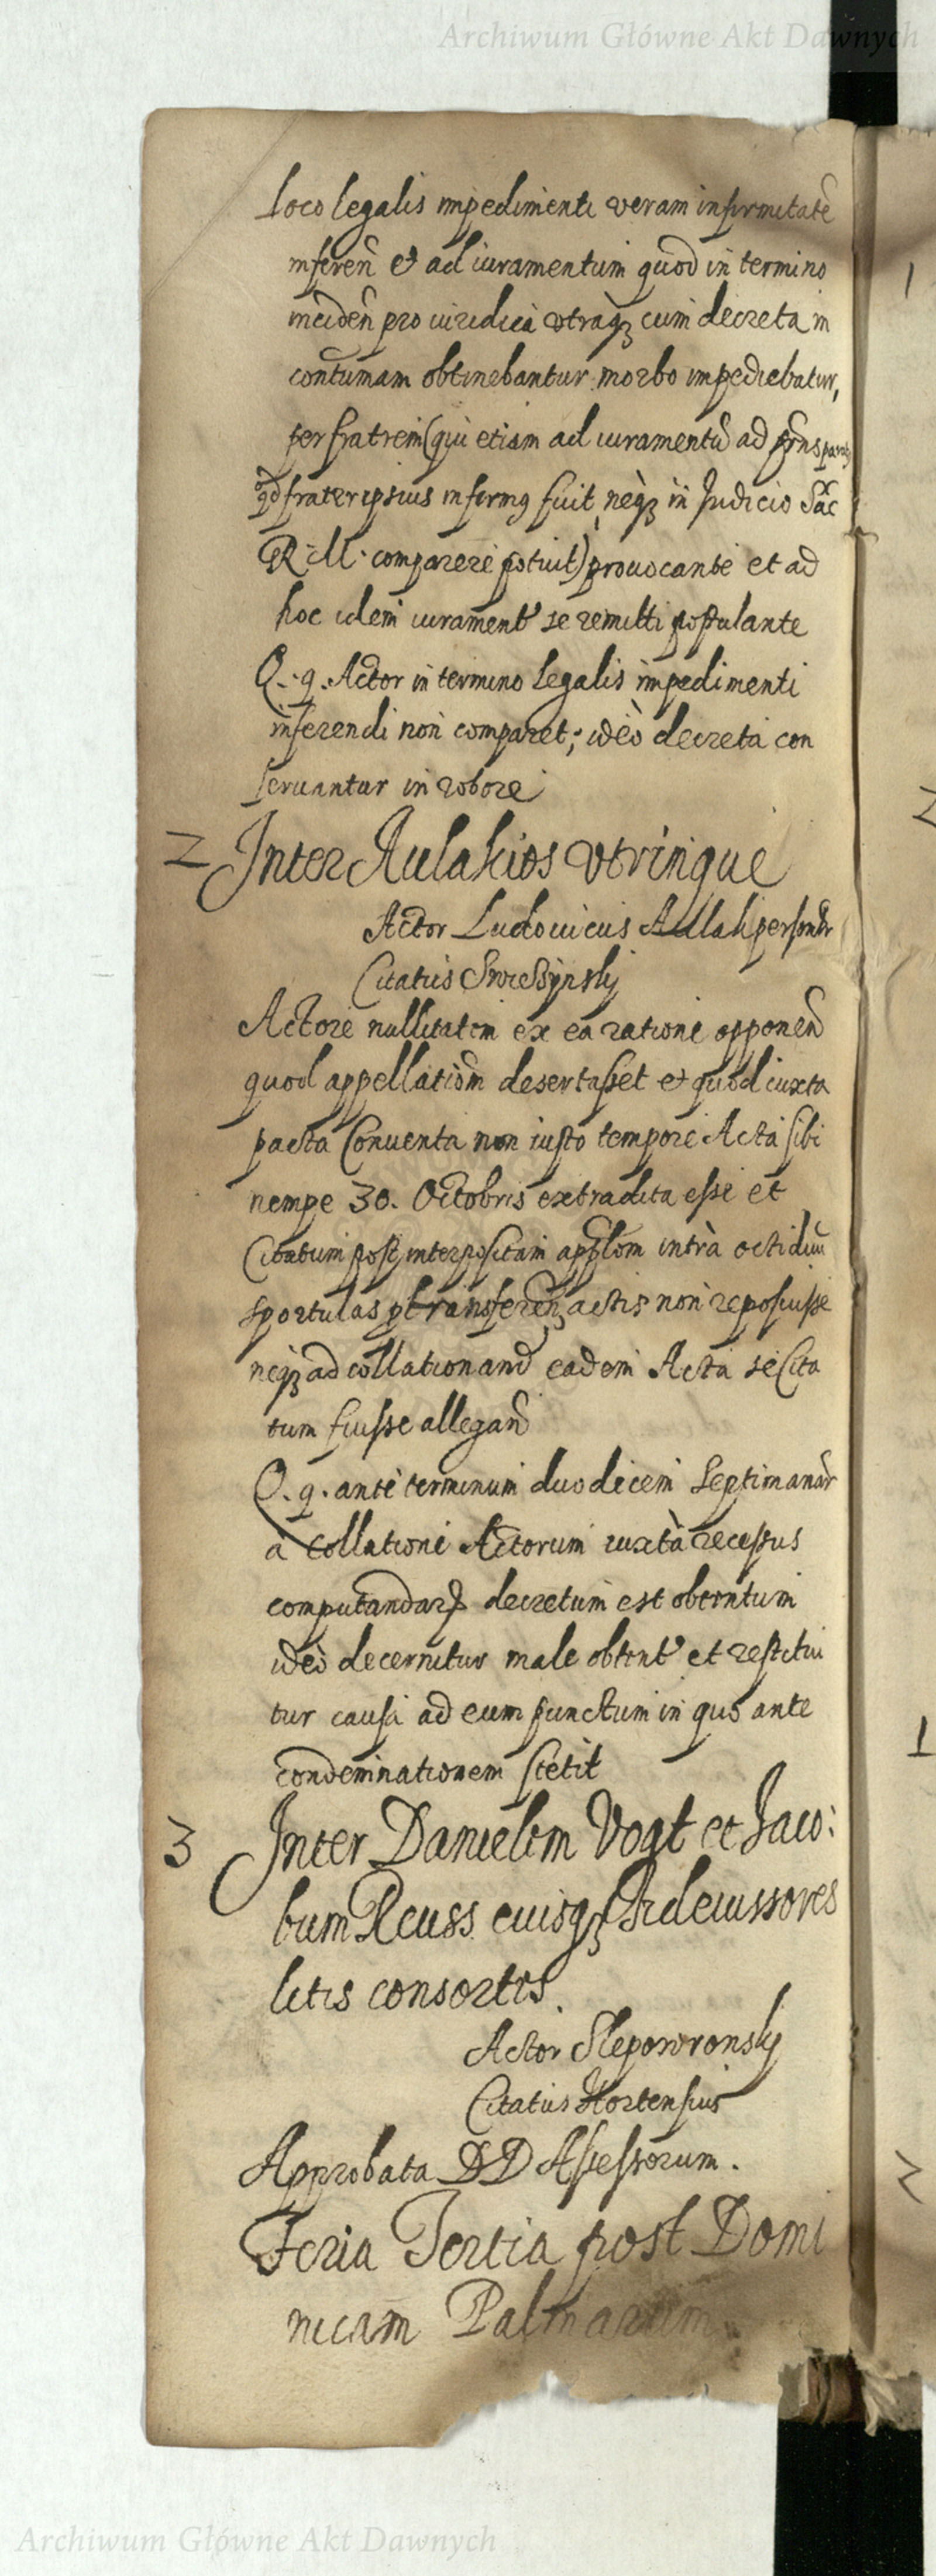 Archiwum Główne Akt Dawnych
loco legalis impedimenti veram infirmitatē
inferen̄ et ad iuramentum quod in termino
inciden̄ pro iuridica vtraq3 cum decreta in
contumam obtinebantur morbo impediebatur,
per fratrem (qui etiam ad iuramentū ad
qd frater ipsius infirmq fuit, neq3 in Judicio Sac
R. M. comparere potuit) prouocante et ad
hoc idem iurament' se remitti postulante
Q. q. Actor in termino legalis impedimenti
inferendi non comparet; ideò decreta con
seruantur in robore
2 Inter Aulakios vtrinque
Actor Ludouicus Aullak personlr
Citatus
Actore nullitatem ex ea ratione opponen̄
quod appellatiōm desertasset et quod iuxta
pacta Conuenta non iusto tempore Acta sibi
nempe 30. Octobris extradita esse et
Citatum post interpositam appllōm intrà octiduū
sportulas transferen̄ actis non reposuisse
neq3 ad collationand eadem Acta se Cita
tum fuisse allegan̄
Q. q. ante terminum duodecem Septimanar
à Collatione Actorum iuxtà recessus
computandarꝝ decretum est obtentum
ideò decernitur male obtent' et restitui
tur causa ad eum punctum in quo ante
condemnationem stetit
3 Inter Danielem Vogt et Jaco:
bum Reuss cuisq3 Fideiussores
litis consortes.
Actor Slepowronsky
Citatus Hortensius
Approbata DD Assessorum.
Feria Tertia post Domi
nicam Palmarum.
Archiwum Główne Akt Dawnych